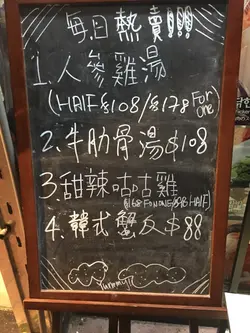 每日熱賣!!!!
1. 人參雞湯
(HAlF $108/$178 For one)
2. 牛肋骨湯$108
3. 甜辣咕咕雞
$168 FOR ONE/$98 HAlF)
4. 韓式蟹皿$88
Yummy!!